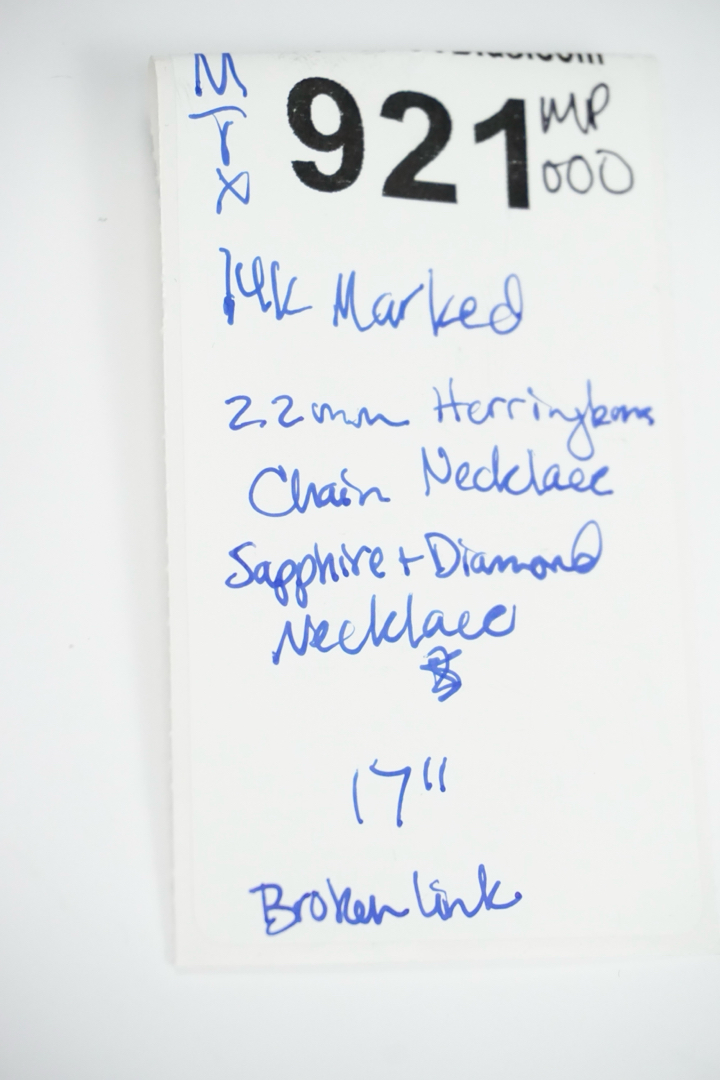 M
T 921 MP
X 000
14k Marked
2.2mm Herringbone
Chain Necklace
Sapphire + Diamond
Necklace
17"
Broken link